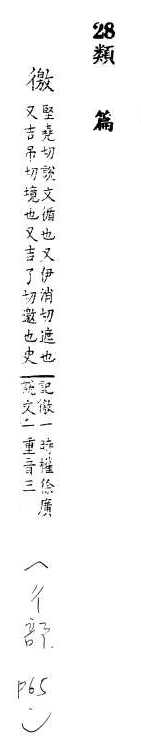 28類篇
徼
堅堯切說文循也又伊消切遮也
又吉吊切境也又吉了切邀也史
記徼一時權徐廣
說文二重音三
(彳部 P65)